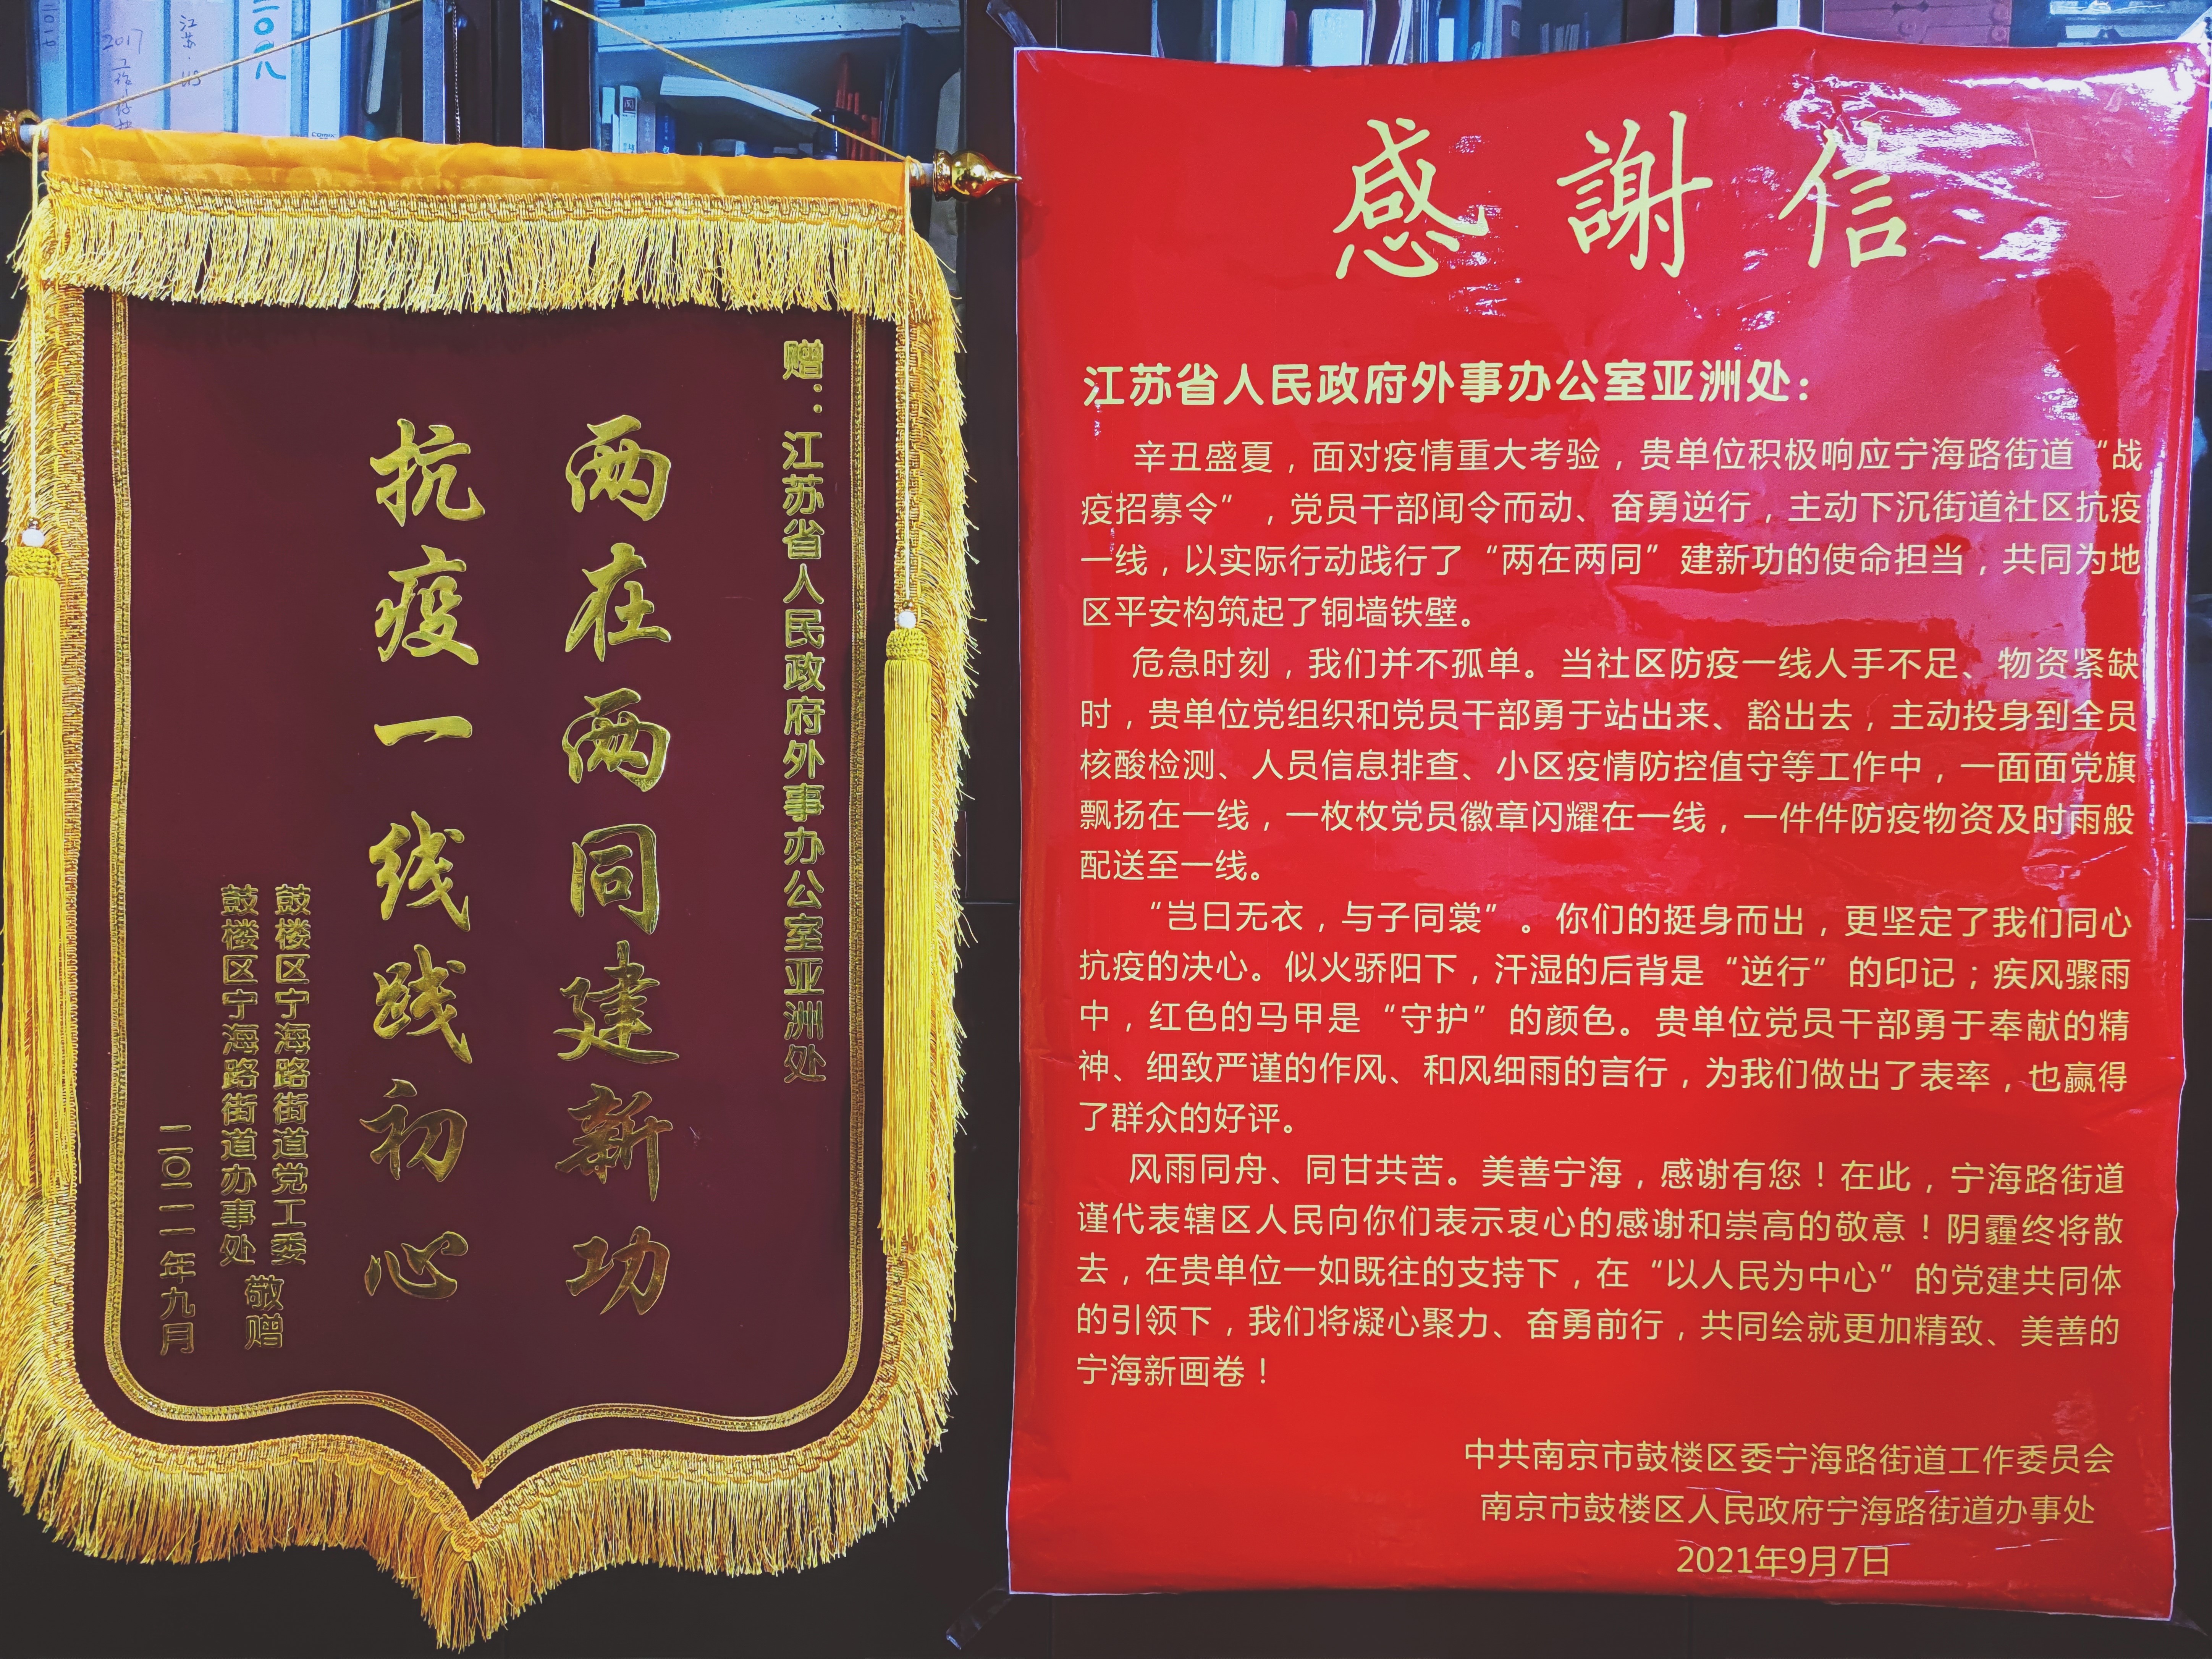 二〇一七
2017
工作
江苏·
二〇一八
赠：江苏省人民政府外事办公室亚洲处
两在两同建新功
抗疫一线践初心
鼓楼区宁海路街道党工委
鼓楼区宁海路街道办事处
敬赠
二〇二一年九月
感謝信
江苏省人民政府外事办公室亚洲处：
辛丑盛夏，面对疫情重大考验，贵单位积极响应宁海路街道“战
疫招募令”，党员干部闻令而动、奋勇逆行，主动下沉街道社区抗疫
一线，以实际行动践行了“两在两同”建新功的使命担当，共同为地
区平安构筑起了铜墙铁壁。
危急时刻，我们并不孤单。当社区防疫一线人手不足、物资紧缺
时，贵单位党组织和党员干部勇于站出来、豁出去，主动投身到全员
核酸检测、人员信息排查、小区疫情防控值守等工作中，一面面党旗
飘扬在一线，一枚枚党员徽章闪耀在一线，一件件防疫物资及时雨般
配送至一线。
“岂曰无衣，与子同裳”。你们的挺身而出，更坚定了我们同心
抗疫的决心。似火骄阳下，汗湿的后背是“逆行”的印记；疾风骤雨
中，红色的马甲是“守护”的颜色。贵单位党员干部勇于奉献的精
神、细致严谨的作风、和风细雨的言行，为我们做出了表率，也赢得
了群众的好评。
风雨同舟、同甘共苦。美善宁海，感谢有您！在此，宁海路街道
谨代表辖区人民向你们表示衷心的感谢和崇高的敬意！阴霾终将散
去，在贵单位一如既往的支持下，在“以人民为中心”的党建共同体
的引领下，我们将凝心聚力、奋勇前行，共同绘就更加精致、美善的
宁海新画卷！
中共南京市鼓楼区委宁海路街道工作委员会
南京市鼓楼区人民政府宁海路街道办事处
2021年9月7日